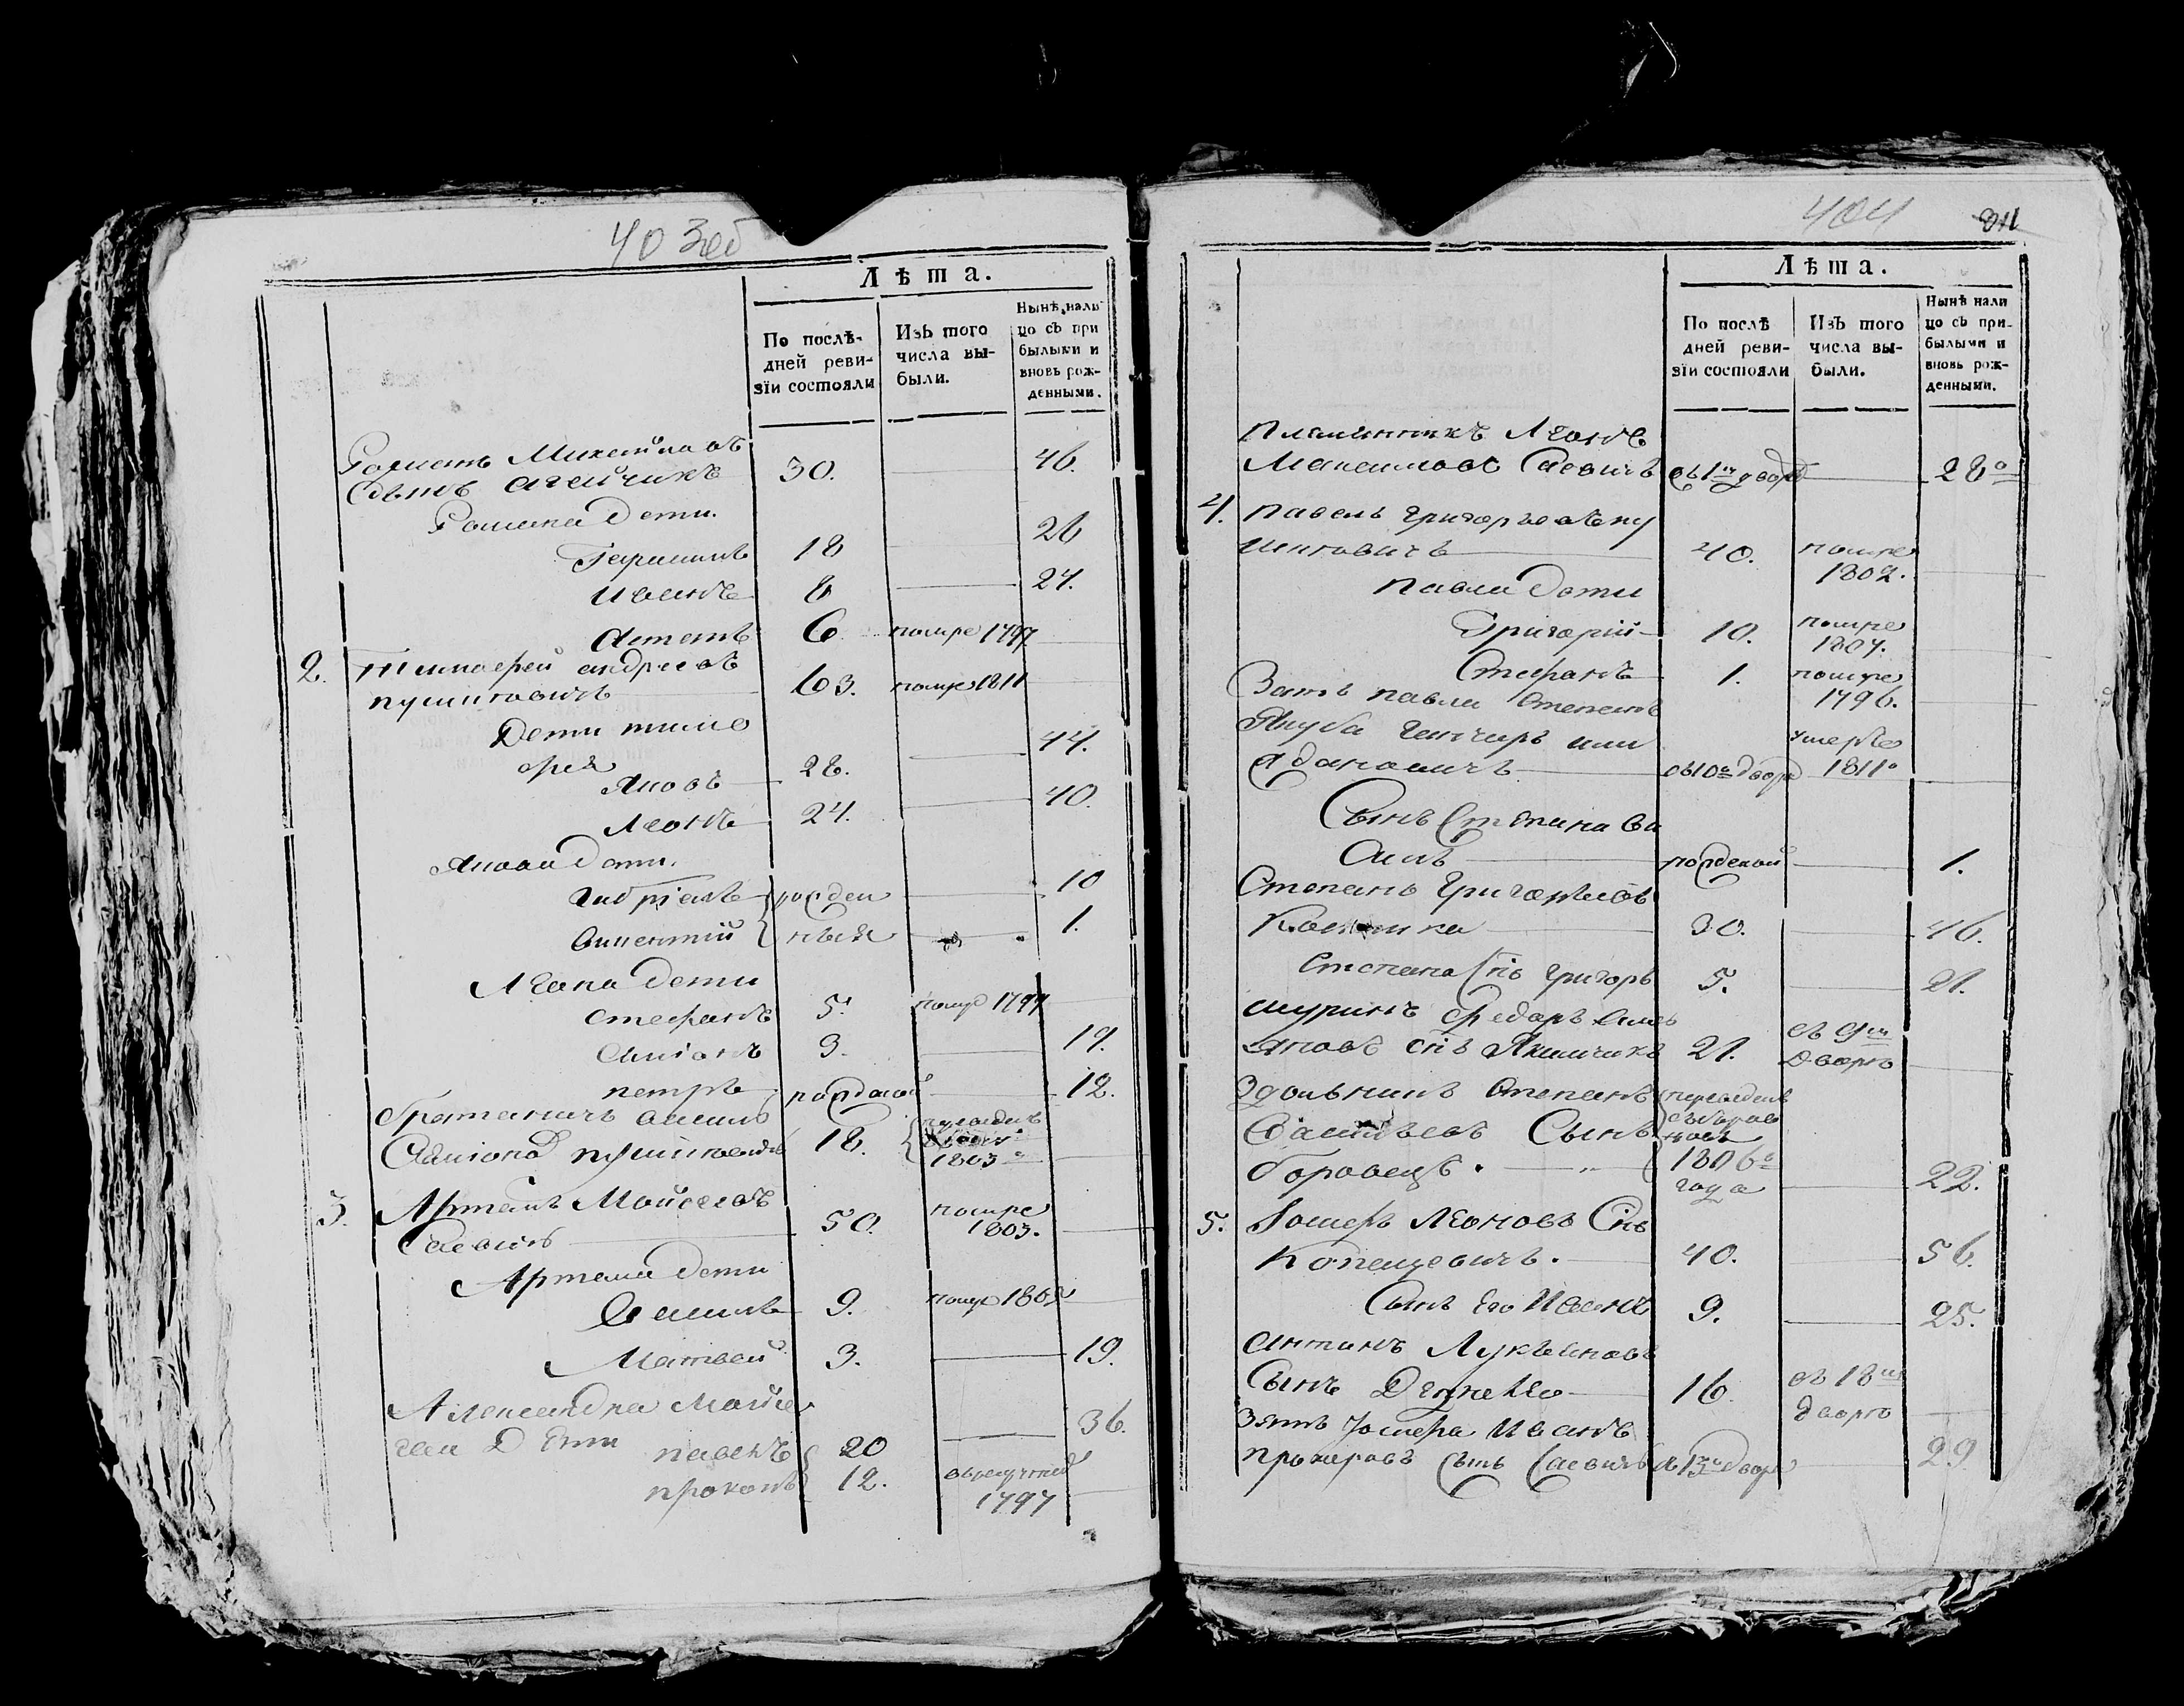 403об
Лѣта.
По послѣ-
дней реви-
зіи состояли
Изъ того
числа вы-
были.
Нынѣ нали
цо съ при
былыми и
вновь рож-
денными.
Романъ Микитновъ
Сынъ 30. 46.
Романа Дети.
Герасимъ 18 26
Иванъ 8 24.
6 помре 1797
2. Тимофей андреевъ
пушковичъ 63. помре 1811
Дети тимо
фея 44.
Яковъ 28.
Леонъ 24. 40.
Якова Дети.
Габріелъ рожден 10
Викентій ныя 1.
Леона Дети
Стефанъ 5. помре 1797
Симонъ 3. 19.
Петръ рожденой 12.
18.
1803
3. Артемъ Мойсеевъ
Саевичъ 50. помре
1803.
Артема Дети
9. помре
Матвей 3. 19.
Александра Мойсе
ева Дети 36.
Павелъ 20
Прокопъ 12. врекруты
1797
404
311
Лѣта.
По послѣ
дней реви-
зіи состояли
Изъ того
числа вы-
были.
Нынѣ нали
цо съ при-
былыми и
вновь рож-
денными.
Племянникъ Леонъ
Максимовъ Саевичъ съ 1го двора 28
4. Павелъ Григорьевъ пу
шковичъ 40. помре
1802.
Павла Дети
Григорій 10. помре
1807.
Стефанъ 1. помре
1796.
Зять павла Степанъ
Якуба или умерше
съ 10го двора 1811
Сынъ Степана Ва
силь рожденой 1.
Степанъ Григорьевъ
30. 46.
Степана Снъ Григоръ 5. 21.
Шуринъ Федоръ
Яковъ Снъ Якимчикъ 21. въ
дворъ
Здольникъ Степанъ переведенъ
Васильевъ Сынъ
Боровецъ 1806
года 22.
5. Іосифъ Леоновъ Снъ
Копецевичъ. 40. 56.
Сынъ Его Иванъ 9. 25.
Антонъ Лукьяновъ
Сынъ 16 въ 18й
дворъ
Зять Іосифа Иванъ
Прохоровъ Сынъ Саевичъ двора 29